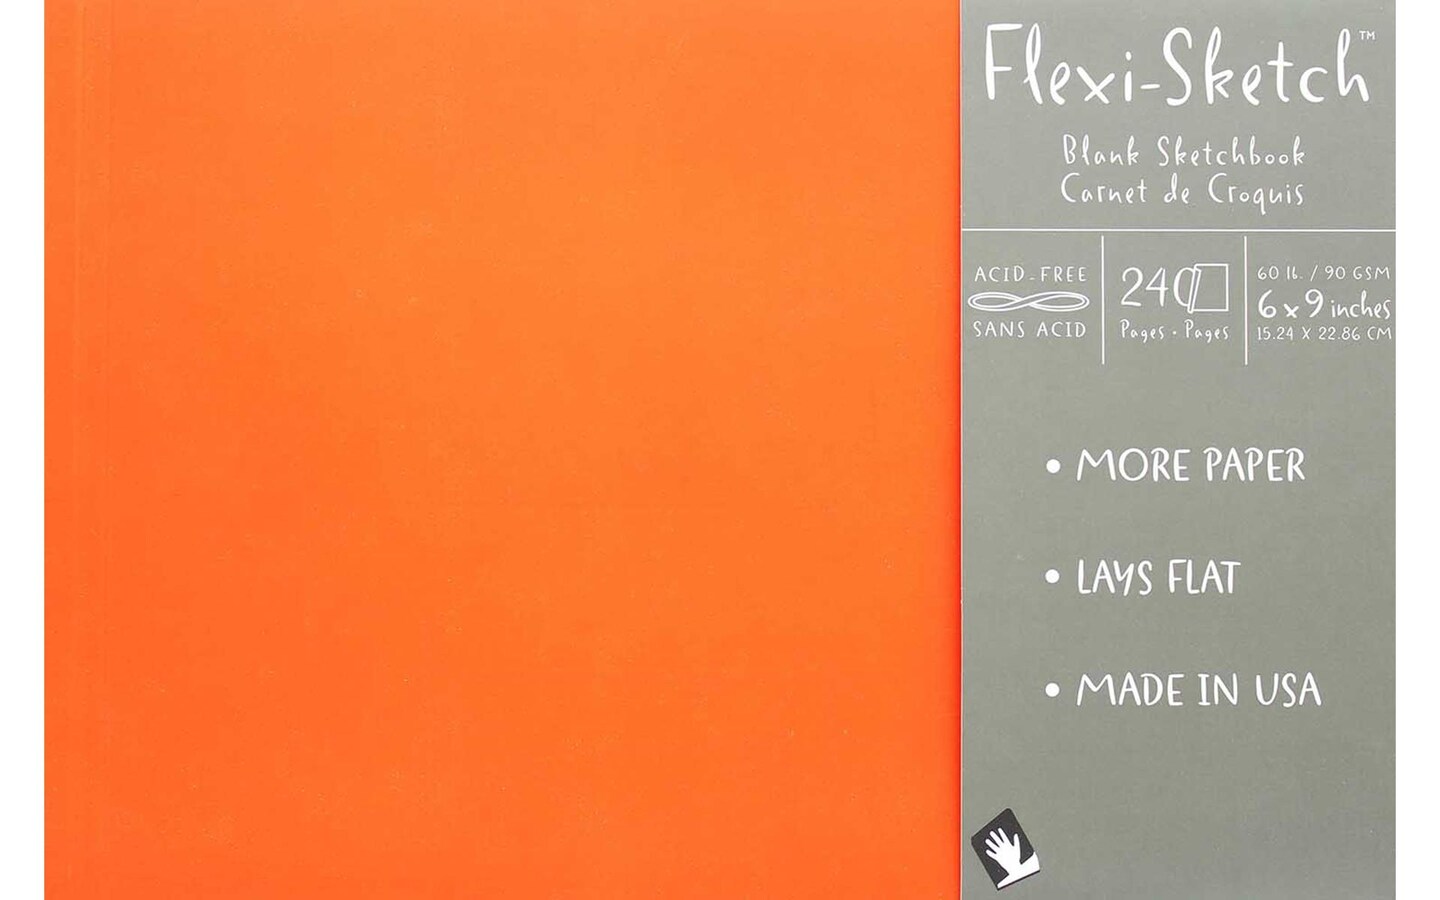 Flexi-Sketch™
Blank Sketchbook
Carnet de Croquis
ACID-FREE
SANS ACID
240
Pages • Pages
60 lb. / 90 GSM
6 x 9 inches
15.24 X 22.86 CM
• MORE PAPER
• LAYS FLAT
• MADE IN USA